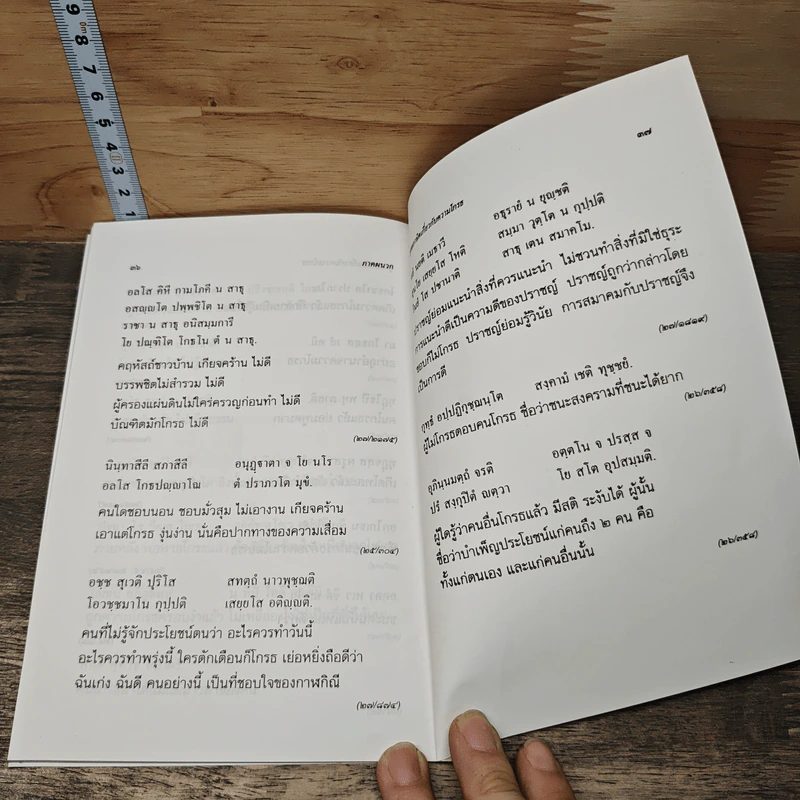 9
8
7
6
5
4
3
2
1
๓๖
ภาคผนวก
อลโส คิหี กามโภคี น สาธุ
อสญฺญโต ปพฺพชิโต น สาธุ
ราชา น สาธุ อนิสมฺมการี
โย ปณฺฑิโต โกธโน ตํ น สาธุ.
คฤหัสถ์ชาวบ้าน เกียจคร้าน ไม่ดี
บรรพชิตไม่สำรวม ไม่ดี
ผู้ครองแผ่นดินไม่ใคร่ครวญก่อนทำ ไม่ดี
บัณฑิตมักโกรธ ไม่ดี
(๒๗/๒๑๗๕)
นินฺทาสีลี สภาสีลี อนุฏฺฐาตา จ โย นโร
อลโส โกธปญฺญาโณ ตํ ปราภวโต มุขํ.
คนใดชอบนอน ชอบมั่วสุม ไม่เอางาน เกียจคร้าน
เอาแต่โกรธ งุ่นง่าน นั่นคือปากทางของความเสื่อม
(๒๕/๓๐๔)
อชฺช สุเวติ ปุริโส สทตฺถํ นาวพุชฺฌติ
โอวชฺชมาโน กุปฺปติ เสยฺยโส อติญฺญติ.
คนที่ไม่รู้จักประโยชน์ตนว่า อะไรควรทำวันนี้
อะไรควรทำพรุ่งนี้ ใครตักเตือนก็โกรธ เย่อหยิ่งถือดีว่า
ฉันเก่ง ฉันดี คนอย่างนี้ เป็นที่ชอบใจของกาฬกิณี
(๒๗/๘๗๔)
๓๗
เกี่ยวกับความโกรธ
นยติ เมธาวี อธุรายํ น ยุญฺชติ
เสยฺยโส โหติ สมฺมา วุตฺโต น กุปฺปติ
โส ปชานาติ สาธุ เตน สมาคโม.
ปราชญ์ย่อมแนะนำสิ่งที่ควรแนะนำ ไม่ชวนทำสิ่งที่มิใช่ธุระ
การแนะนำดีเป็นความดีของปราชญ์ ปราชญ์ถูกว่ากล่าวโดย
ชอบก็ไม่โกรธ ปราชญ์ย่อมรู้วินัย การสมาคมกับปราชญ์จึง
เป็นการดี
(๒๗/๑๘๑๙)
กุทฺธํ อปฺปฏิกุชฺฌนฺโต สงฺคามํ เชติ ทุชฺชยํ.
ผู้ไม่โกรธตอบคนโกรธ ชื่อว่าชนะสงครามที่ชนะได้ยาก
(๒๖/๓๕๘)
อุภินฺนมตฺถํ จรติ อตฺตโน จ ปรสฺส จ
ปรํ สงฺกุปิตํ ญตฺวา โย สโต อุปสมฺมติ.
ผู้ใดรู้ว่าคนอื่นโกรธแล้ว มีสติ ระงับได้ ผู้นั้น
ชื่อว่าบำเพ็ญประโยชน์แก่คนถึง ๒ คน คือ
ทั้งแก่ตนเอง และแก่คนอื่นนั้น
(๒๖/๓๕๘)